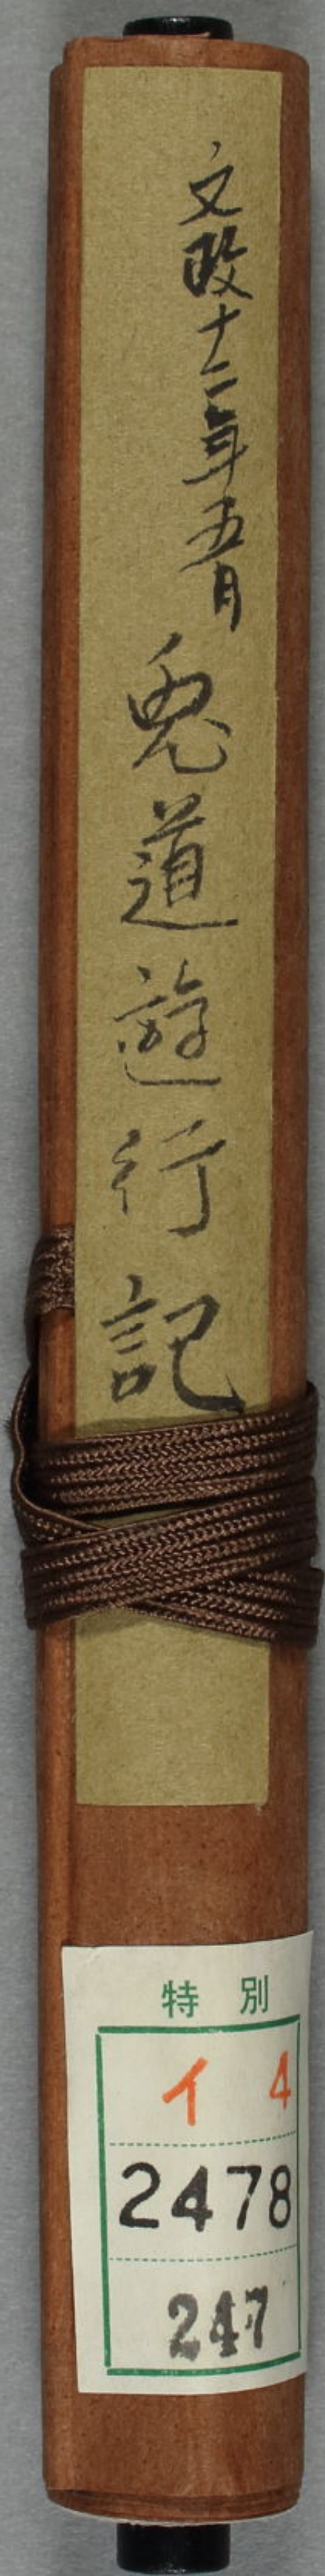 文政十二年五月
兎道遊行記
特別
イ 4
2478
247